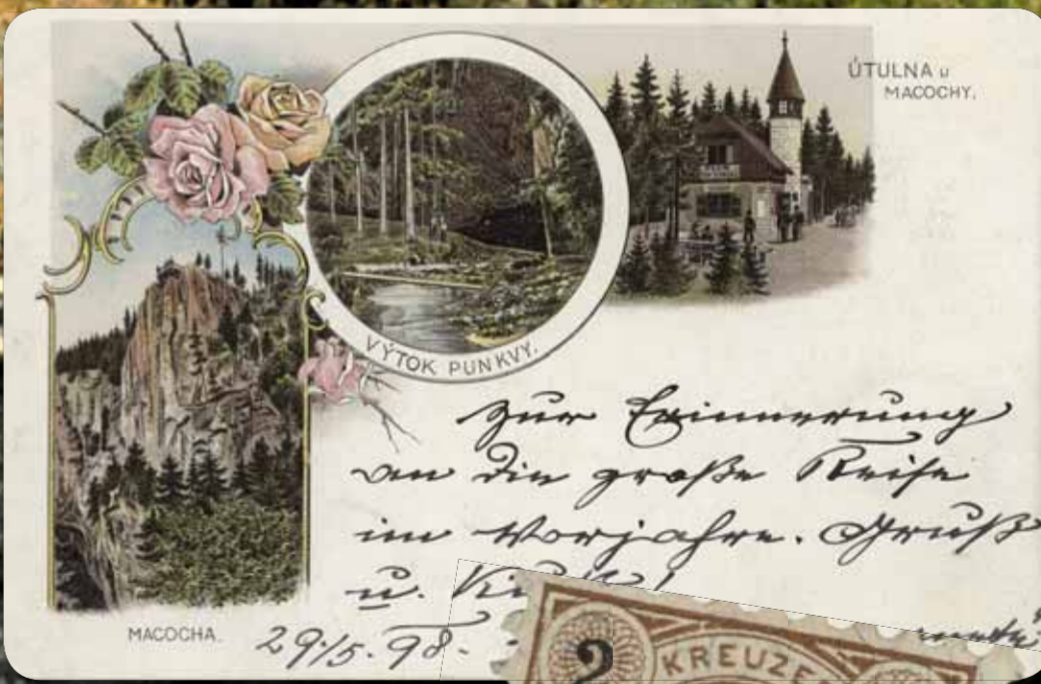 ÚTULNA u
MACOCHY.
VÝTOK PUNKVY.
Zur Erinnerung
an die große Reise
im Vorjahre. Gruß
u.
MACOCHA.
29./5. 98.
2 KREUZE